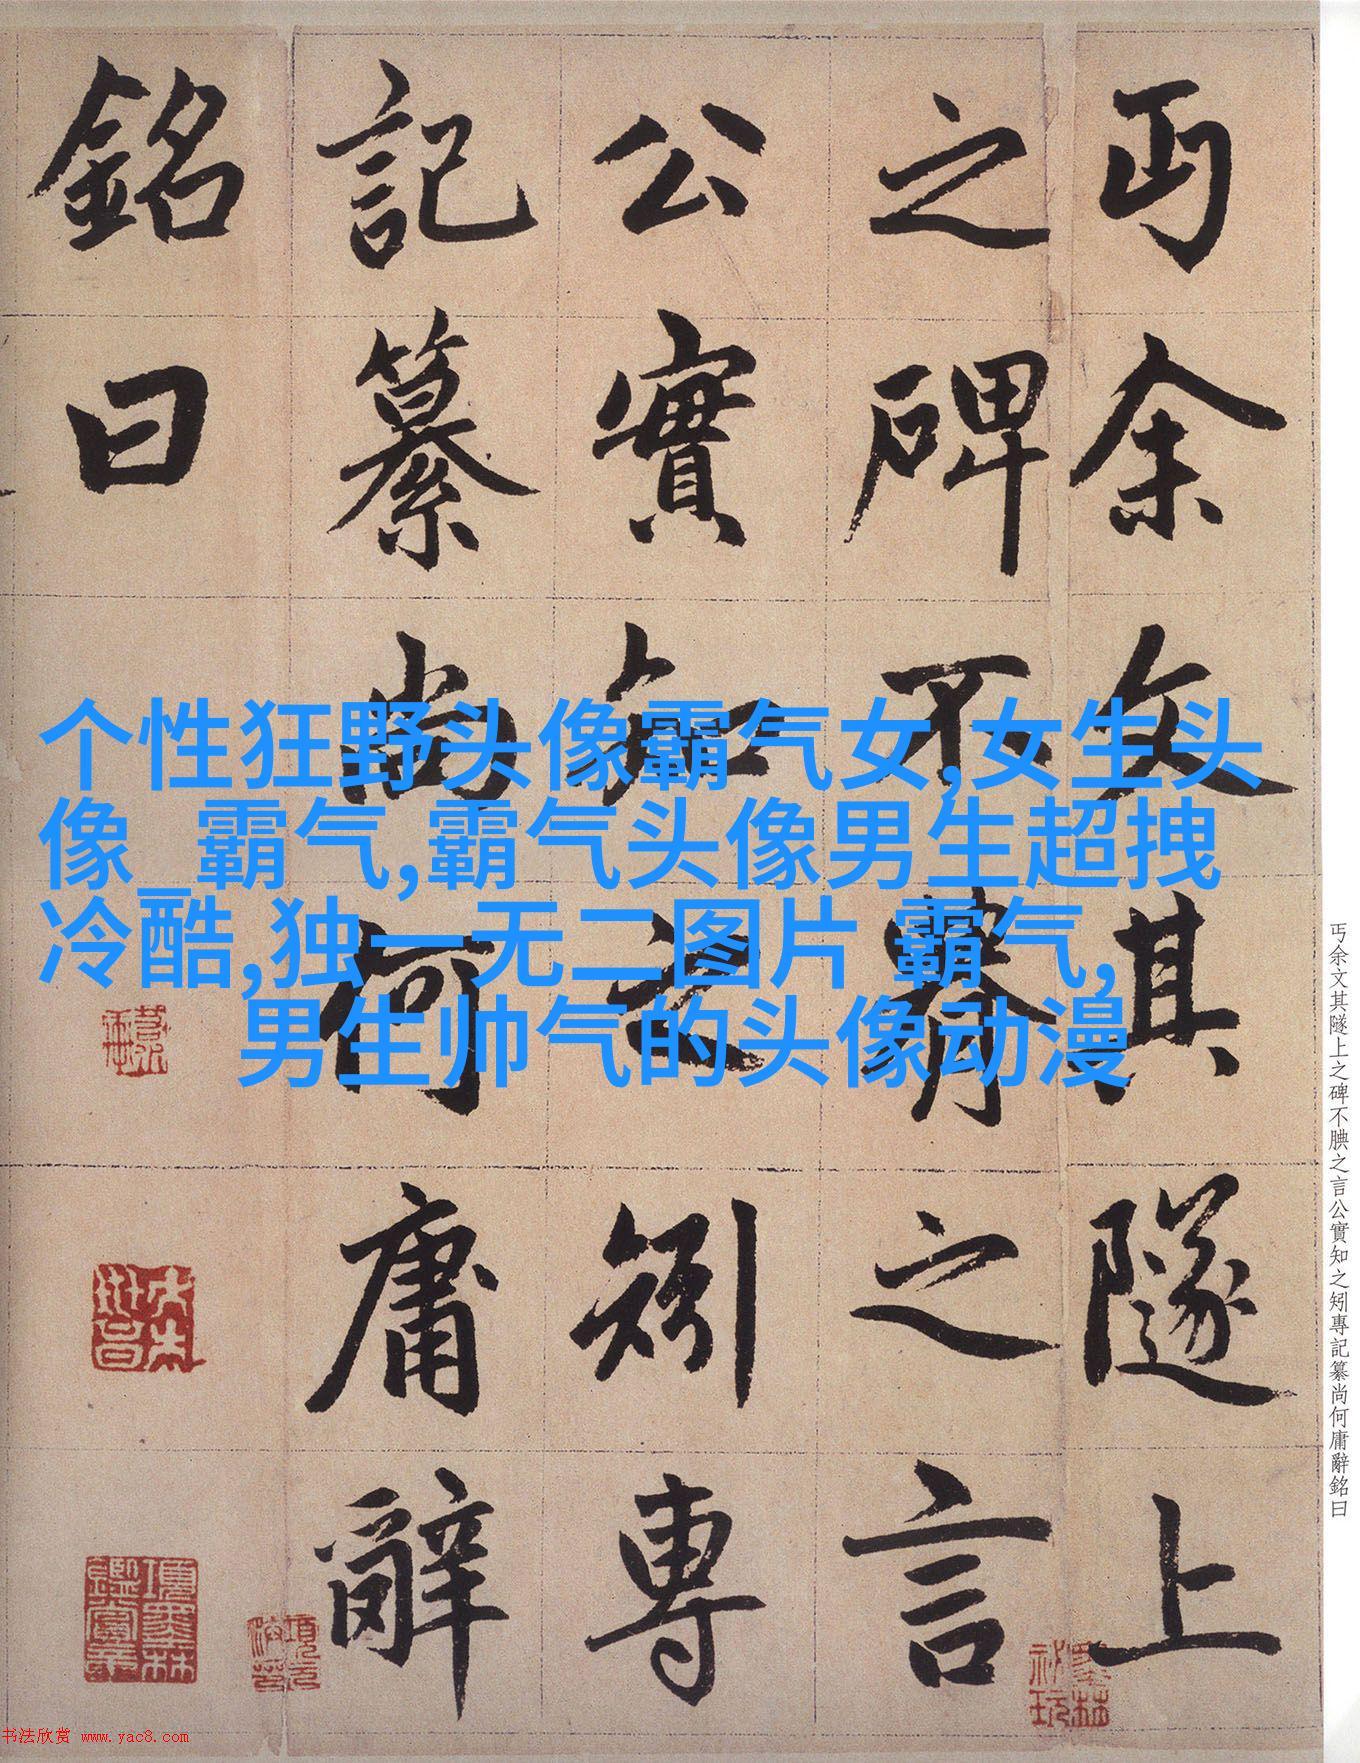 丐余文其隧上
之碑不腆之言
公實知之矧專
記纂尚何庸辭
銘曰
个性狂野头像霸气女,女生头
像_ 霸气,霸气头像男生超拽
冷酷,独一无二图片 霸气,
男生帅气的头像动漫
丐余文其隧上之碑不腆之言公實知之矧專記纂尚何庸辭銘曰
项墨林鑑賞章
书法欣赏 www.yac8.com